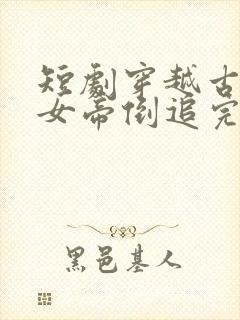 短劇穿越古
女帝倒追完
黑邑基人